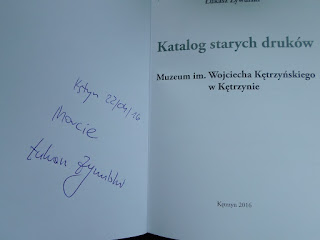 Kętrzyn 22/04/16
Marcie
Łukasz Żywulski
Katalog starych druków
Muzeum im. Wojciecha Kętrzyńskiego
w Kętrzynie
Kętrzyn 2016